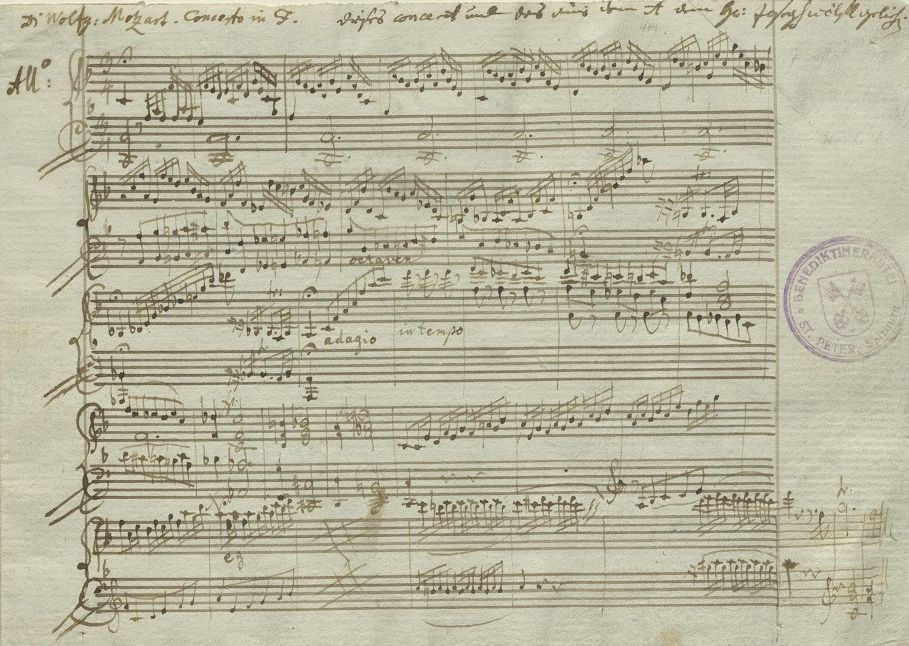 Di Wolfg: Mozart. Concerto in F. dieses concerit und das aus dem A dem Hr:
All°:
octaven
adagio in tempo
BENEDIKTINERABTEI ST. PETER, SALZBURG